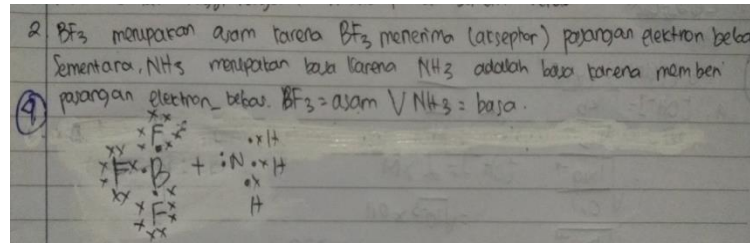 2. BF3 merupakan asam karena BF3 menerima (akseptor) pasangan elektron beba
Sementara, NH3 merupakan basa karena NH3 adalah basa karena memberi
9 pasangan elektron bebas. BF3 = asam V NH3 = basa.
F H
F B + :N H
F H